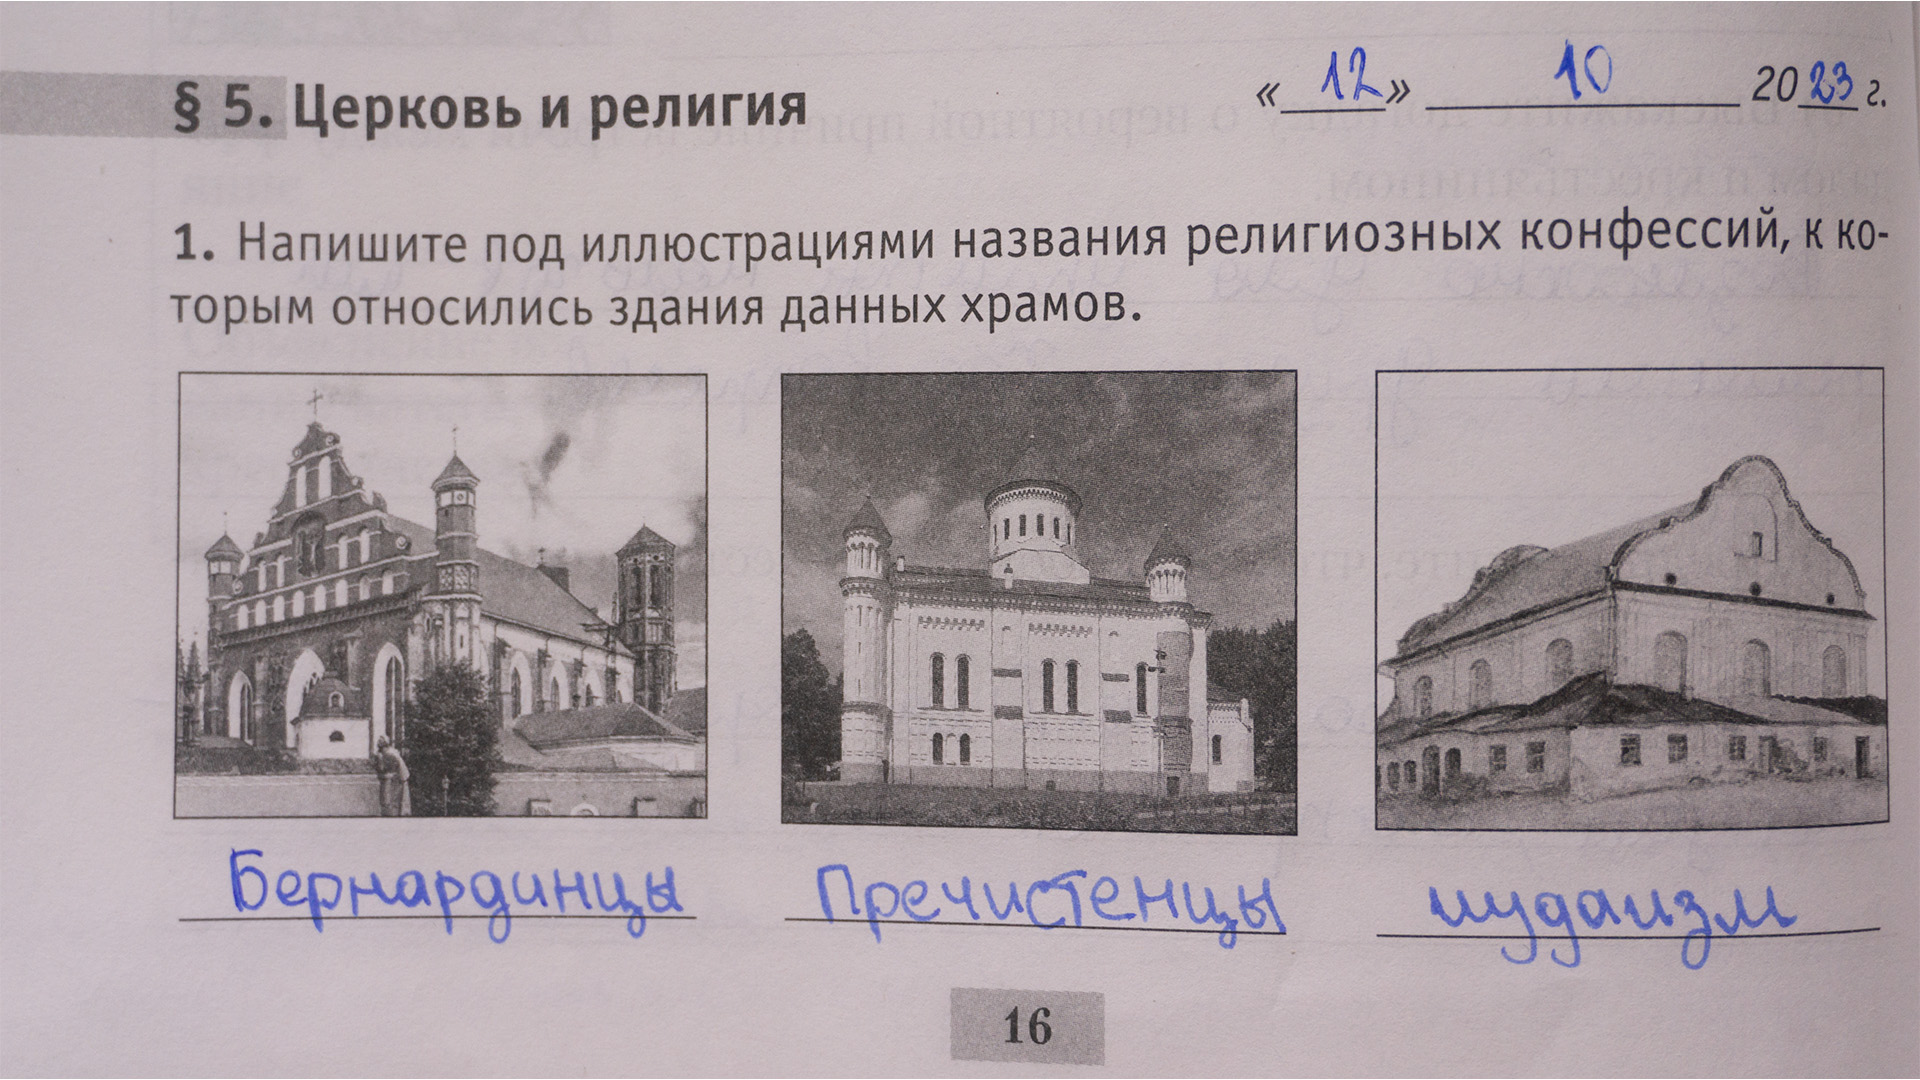 § 5. Церковь и религия «12» 10 2023 г.
1. Напишите под иллюстрациями названия религиозных конфессий, к ко-
торым относились здания данных храмов.
Бернардинцы Пречистенцы иудаизм
16